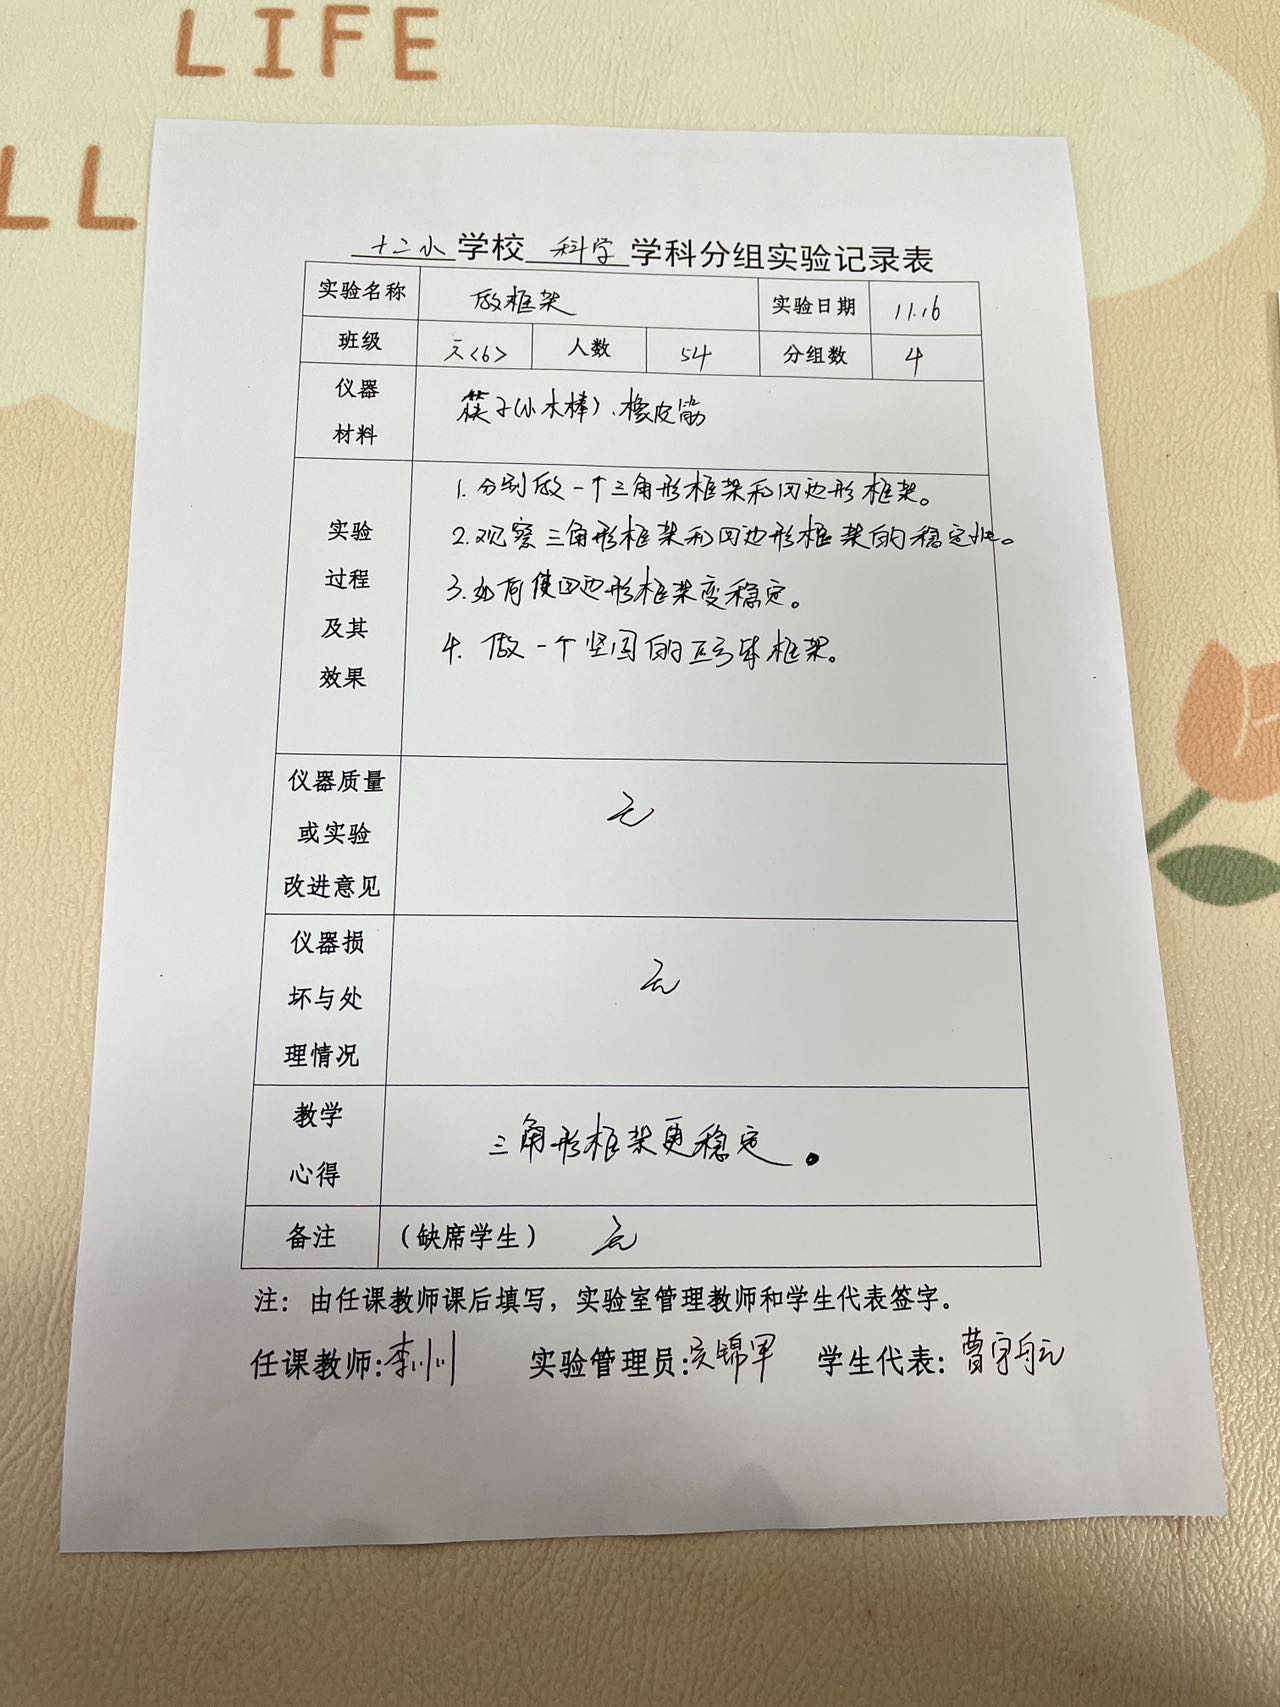 LIFE
LL
十二小学校科学学科分组实验记录表
实验名称 做框架 实验日期 11.16
班级 六<6> 人数 54 分组数 4
仪器
材料
筷子(小木棒)、橡皮筋
实验
过程
及其
效果
1.分别做一个三角形框架和四边形框架。
2.观察三角形框架和四边形框架的稳定性。
3.如何使四边形框架变稳定。
4.做一个坚固的正方体框架。
仪器质量
或实验
改进意见
无
仪器损
坏与处
理情况
无
教学
心得
三角形框架更稳定。
备注 (缺席学生) 无
注：由任课教师课后填写，实验室管理教师和学生代表签字。
任课教师:李川 实验管理员: 学生代表: